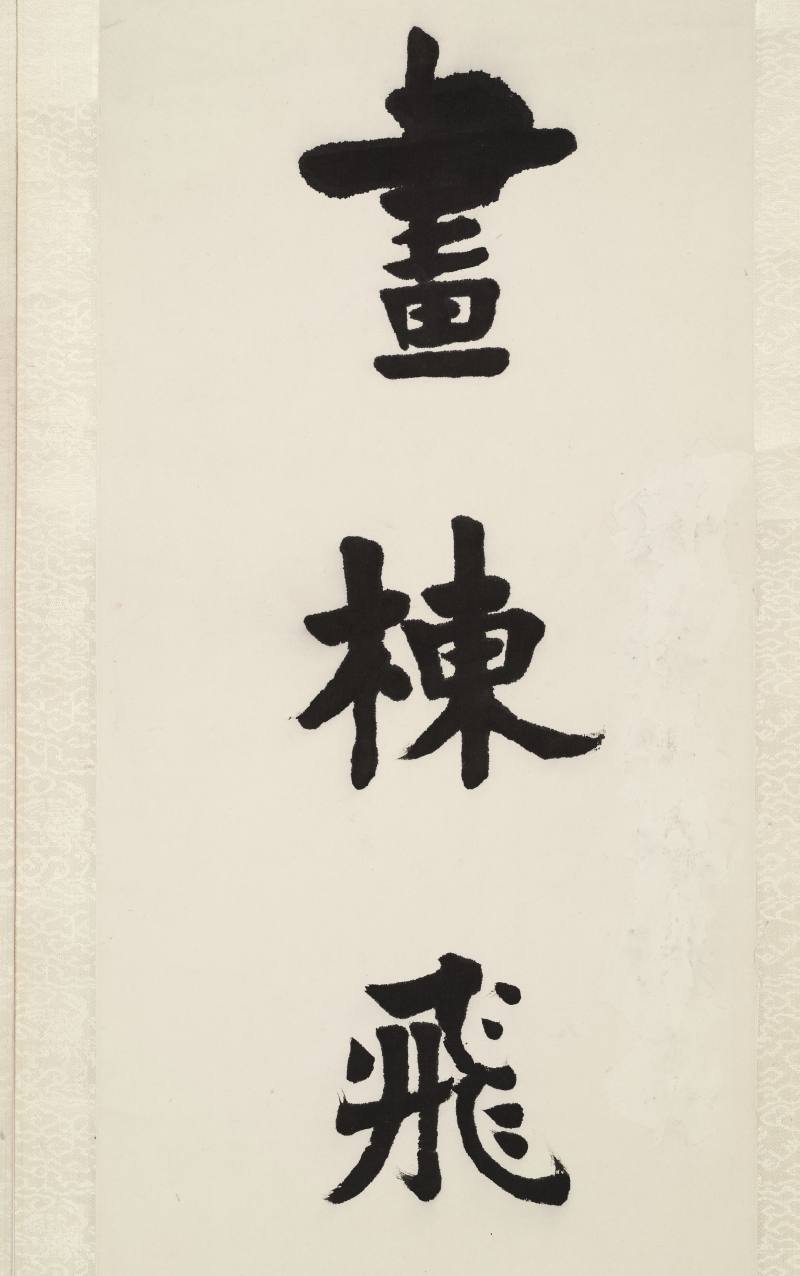 畫棟飛